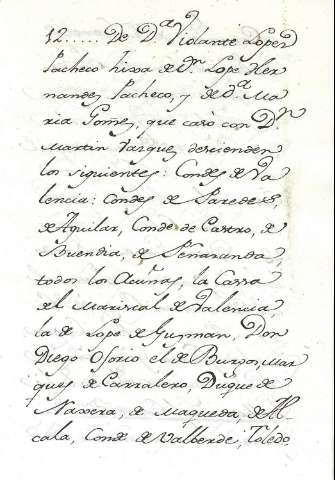 12..... De D.ª Violante Lopez
Pacheco hixa de D.n Lope Her
nandez Pacheco, y de D.ª Ma
ria Gomez, que casò con D.n
Martin Vazquez descienden
los siguientes: Condes de Va
lencia: Condes de Paredes,
de Aguilar, Conde de Castro, de
Buendia, de Peñaranda,
todos los Acuñas, la Cassa
del Mariscal de Valencia,
la de Lope de Guzman, Don
Diego Osorio el de Burgos, Mar
ques de Carralero, Duque de
Naxera, de Maqueda, de Al
cala, Conde de Valberde, Toledo,